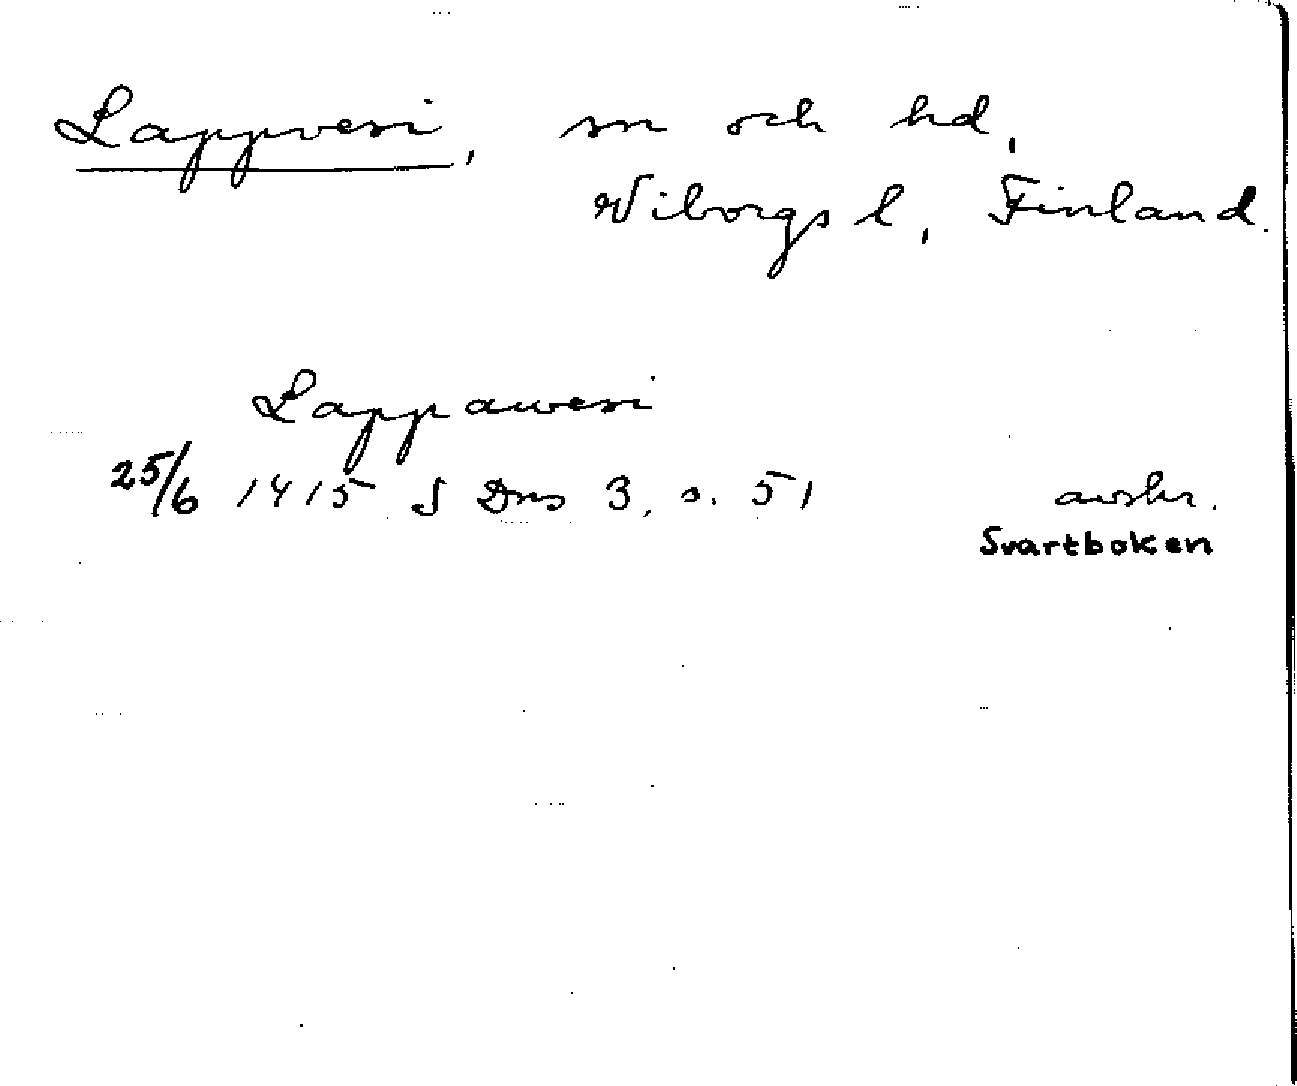 Lappvesi, sn och hd,
Viborgs l, Finland.
Lappawesi
25/6 1415 S Dns 3, s. 51 avskr.
Svartboken